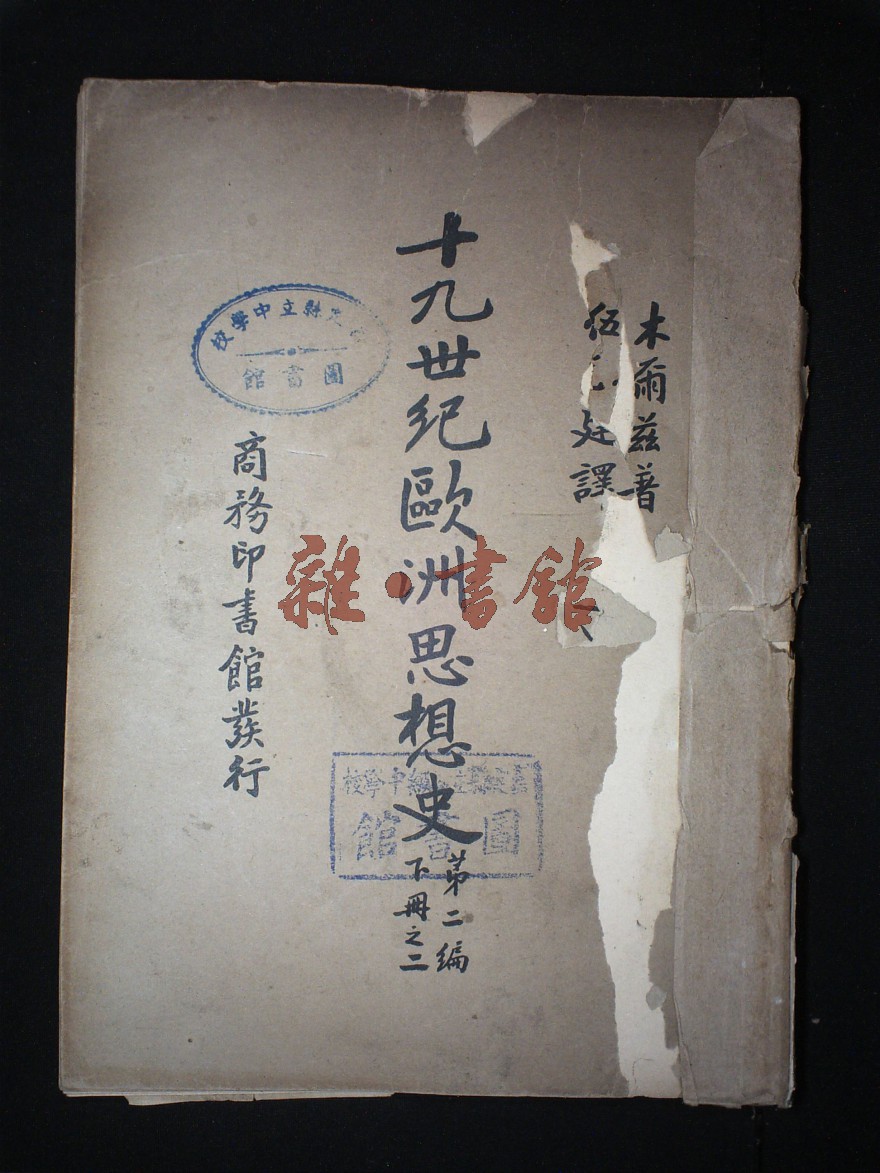 木爾茲著
伍 廷譯
十九世紀歐洲思想史
第二編
下冊之二
商務印書館發行
縣立中學校
圖書館
中學校
圖書館
雜·書館